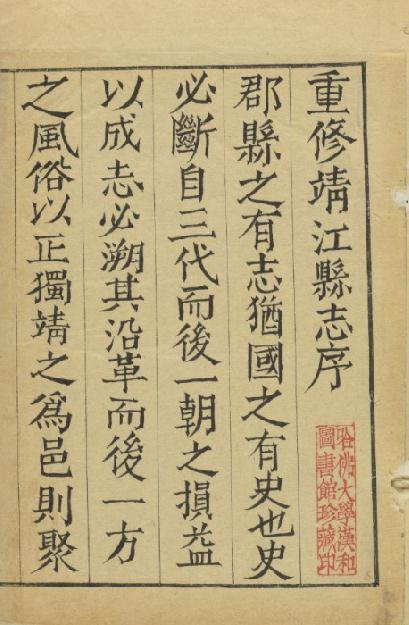 重修靖江縣志序
郡縣之有志猶國之有史也史
必斷自三代而後一朝之損益
以成志必溯其沿革而後一方
之風俗以正獨靖之爲邑則聚
哈佛大學漢和
圖書館珍藏印